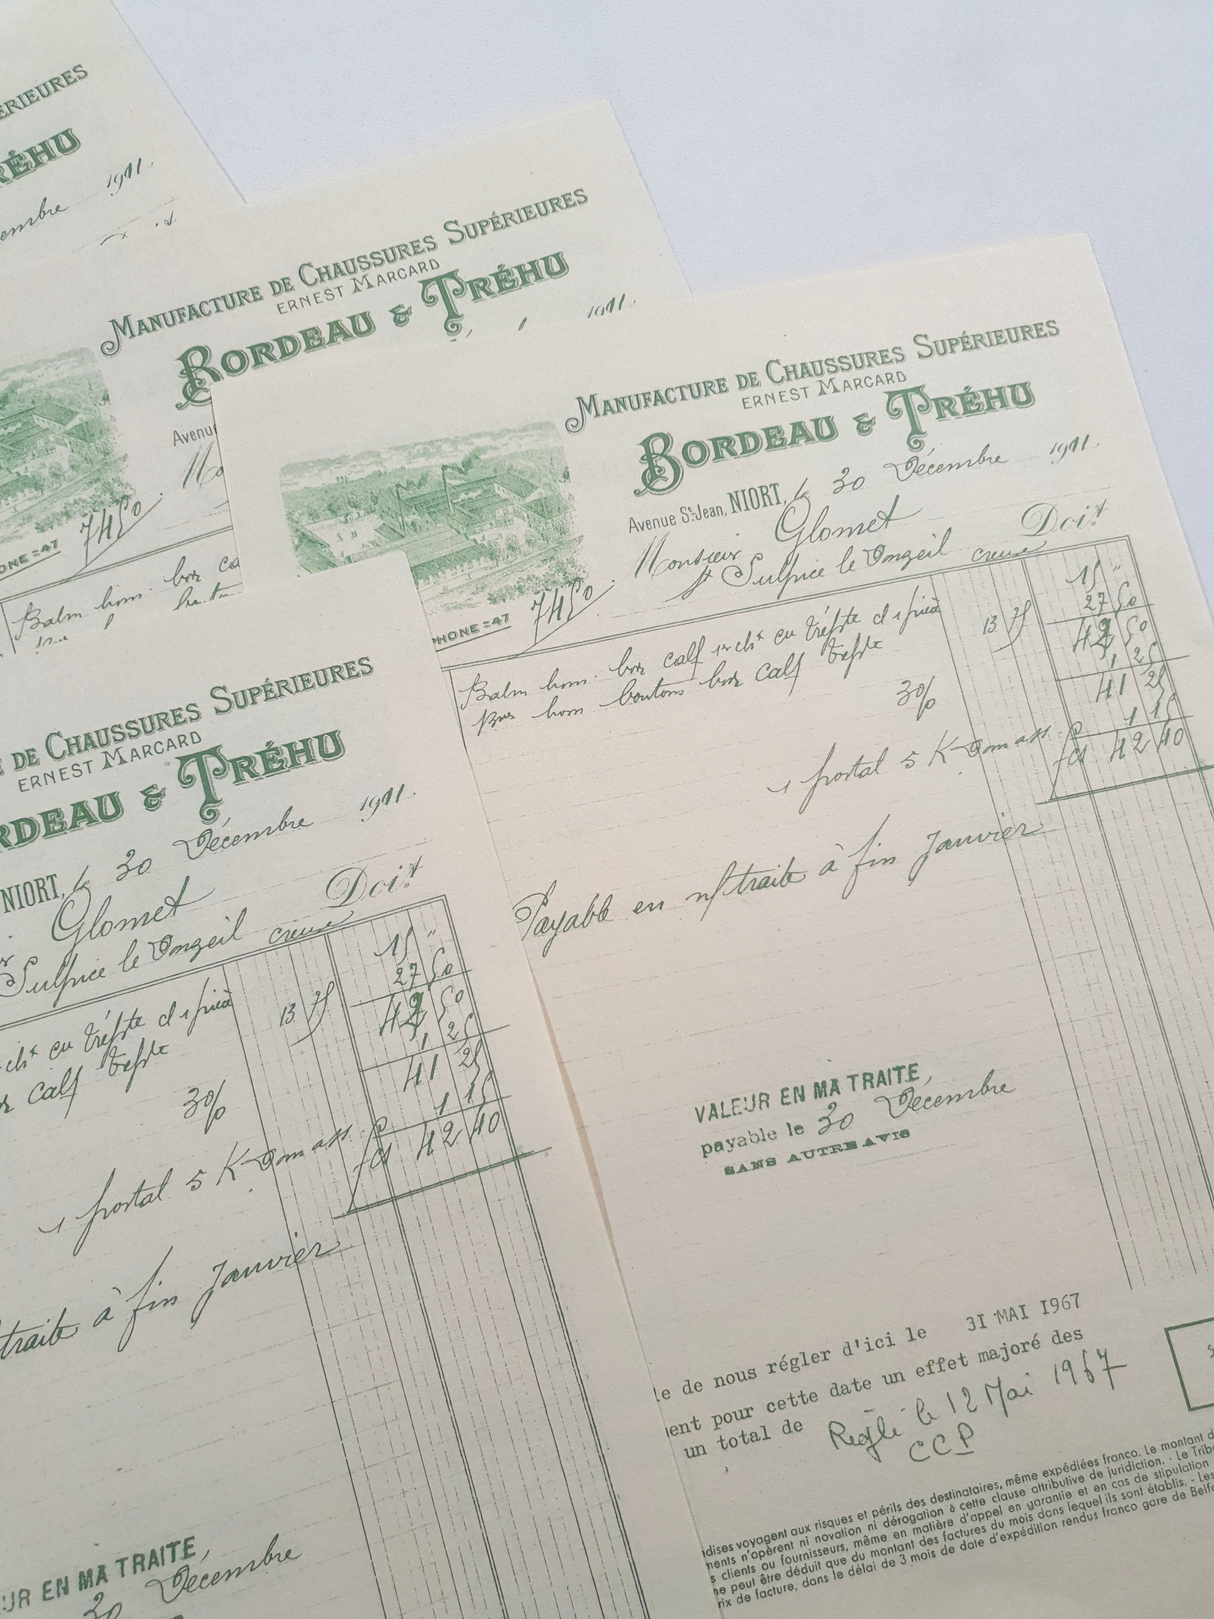 ÉRIEURES
ÉHU
embre 1911.
MANUFACTURE DE CHAUSSURES SUPÉRIEURES
ERNEST MARCARD
BORDEAU & TRÉHU
1911.
Avenu
Mo
7450
ONE =47
Balm hom. box ca
MANUFACTURE DE CHAUSSURES SUPÉRIEURES
ERNEST MARCARD
BORDEAU & TRÉHU
Avenue St-Jean, NIORT, le 30 Décembre 1911.
Monsieur Glomet Doit
St Sulpice le Donzeil creuse
PHONE =47
7450
Balm hom. box calf
15 "
Bns hom boutons box calf 13 75 27 50
42 50
30/0 1 25
41 25
1 postal 5 K Dom 1 15
fcs 42 40
Payable en n/traite à fin Janvier
VALEUR EN MA TRAITE,
payable le 30 Décembre
SANS AUTRE AVIS
le de nous régler d'ici le 31 MAI 1967
ent pour cette date un effet majoré des
un total de Réglé le 12 Mai 1967
CCP
dises voyagent aux risques et périls des destinataires, même expédiées franco. Le montant d
ments n'opèrent ni novation ni dérogation à cette clause attributive de juridiction. - Le Trib
s clients ou fournisseurs, même en matière d'appel en garantie et en cas de stipulation
ne peut être déduit que du montant des factures du mois dans lequel ils sont établis. - Les
rix de facture, dans le délai de 3 mois de date d'expédition rendus franco gare de Belfo
E DE CHAUSSURES SUPÉRIEURES
ERNEST MARCARD
RDEAU & TRÉHU
NIORT, le 30 Décembre 1911.
Glomet Doit
Sulpice le Donzeil creuse
15 "
calf 13 75 27 50
42 50
30/0 1 25
41 25
1 postal 5 K Dom 1 15
fcs 42 40
traite à fin Janvier
UR EN MA TRAITE,
30 Décembre